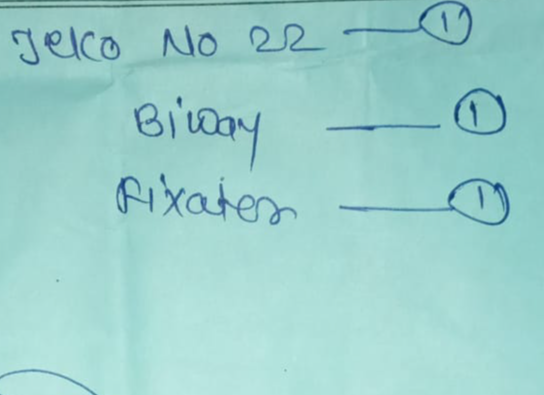 Jelco No 22 — 1
Biway — 1
Fixater — 1